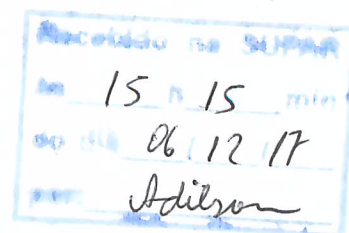 Recebido na SUPAR
às 15 h 15 min
do dia 06/12/17
por: Adilson